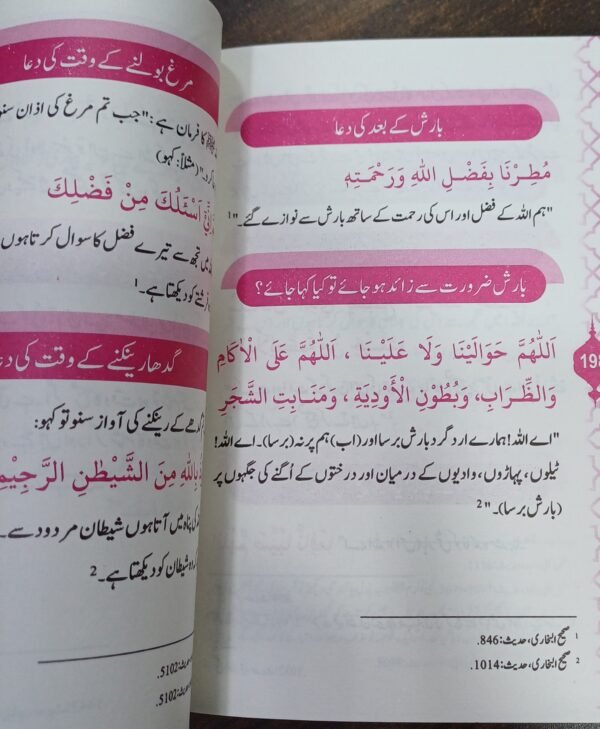 بارش کے بعد کی دعا
مُطِرْنَا بِفَضْلِ اللهِ وَرَحْمَتِهٖ
"ہم اللہ کے فضل اور اس کی رحمت کے ساتھ بارش سے نوازے گئے۔"1
بارش ضرورت سے زائد ہو جائے تو کیا کہا جائے؟
اَللّٰهُمَّ حَوَالَيْنَا وَلَا عَلَيْنَا ، اَللّٰهُمَّ عَلَى الْاٰكَامِ
وَالظِّرَابِ، وَبُطُونِ الْأَوْدِيَةِ ، وَمَنَابِتِ الشَّجَرِ
"اے اللہ! ہمارے ارد گرد بارش برسا اور (اب) ہم پر نہ (برسا)۔ اے اللہ!
ٹیلوں، پہاڑوں، وادیوں کے درمیان اور درختوں کے اُگنے کی جگہوں پر
(بارش برسا)۔"2
1 صحیح البخاری، حدیث: 846.
2 صحیح البخاری، حدیث: 1014.
198
مرغ بولنے کے وقت کی دعا
کا فرمان ہے: "جب تم مرغ کی اذان سنو
کرو۔" (مثلاً: کہو)
اَسْئَلُكَ مِنْ فَضْلِكَ
میں تجھ سے تیرے فضل کا سوال کرتا ہوں
فرشتے کو دیکھتا ہے۔1
گدھا رینکنے کے وقت کی دعا
گدھے کے رینکنے کی آواز سنو تو کہو:
بِاللهِ مِنَ الشَّيْطٰنِ الرَّجِيْمِ
پناہ میں آتا ہوں شیطان مردود سے۔
شیطان کو دیکھتا ہے۔2
حدیث: 5102.
حدیث: 5102.